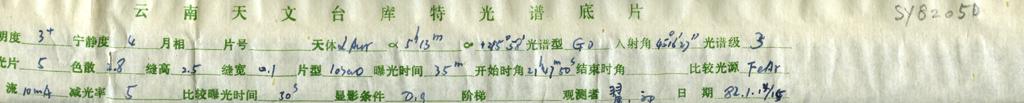 云南天文台库特光谱底片 SYB205D
明度 3⁺ 宁静度 4 月相 片号 天体 α Aur α 5ʰ13ᵐ δ +45°58′ 光谱型 G0 入射角 45°16′27″ 光谱级 3
光片 5 色散 2.8 缝高 2.5 缝宽 0.1 片型 103aO 曝光时间 35ᵐ 开始时角 21ʰ47ᵐ50ˢ 结束时角 比较光源 FeAr
流 10mA 减光率 5 比较曝光时间 30ˢ 显影条件 D19 阶梯 观测者 日期 82.1.14/15